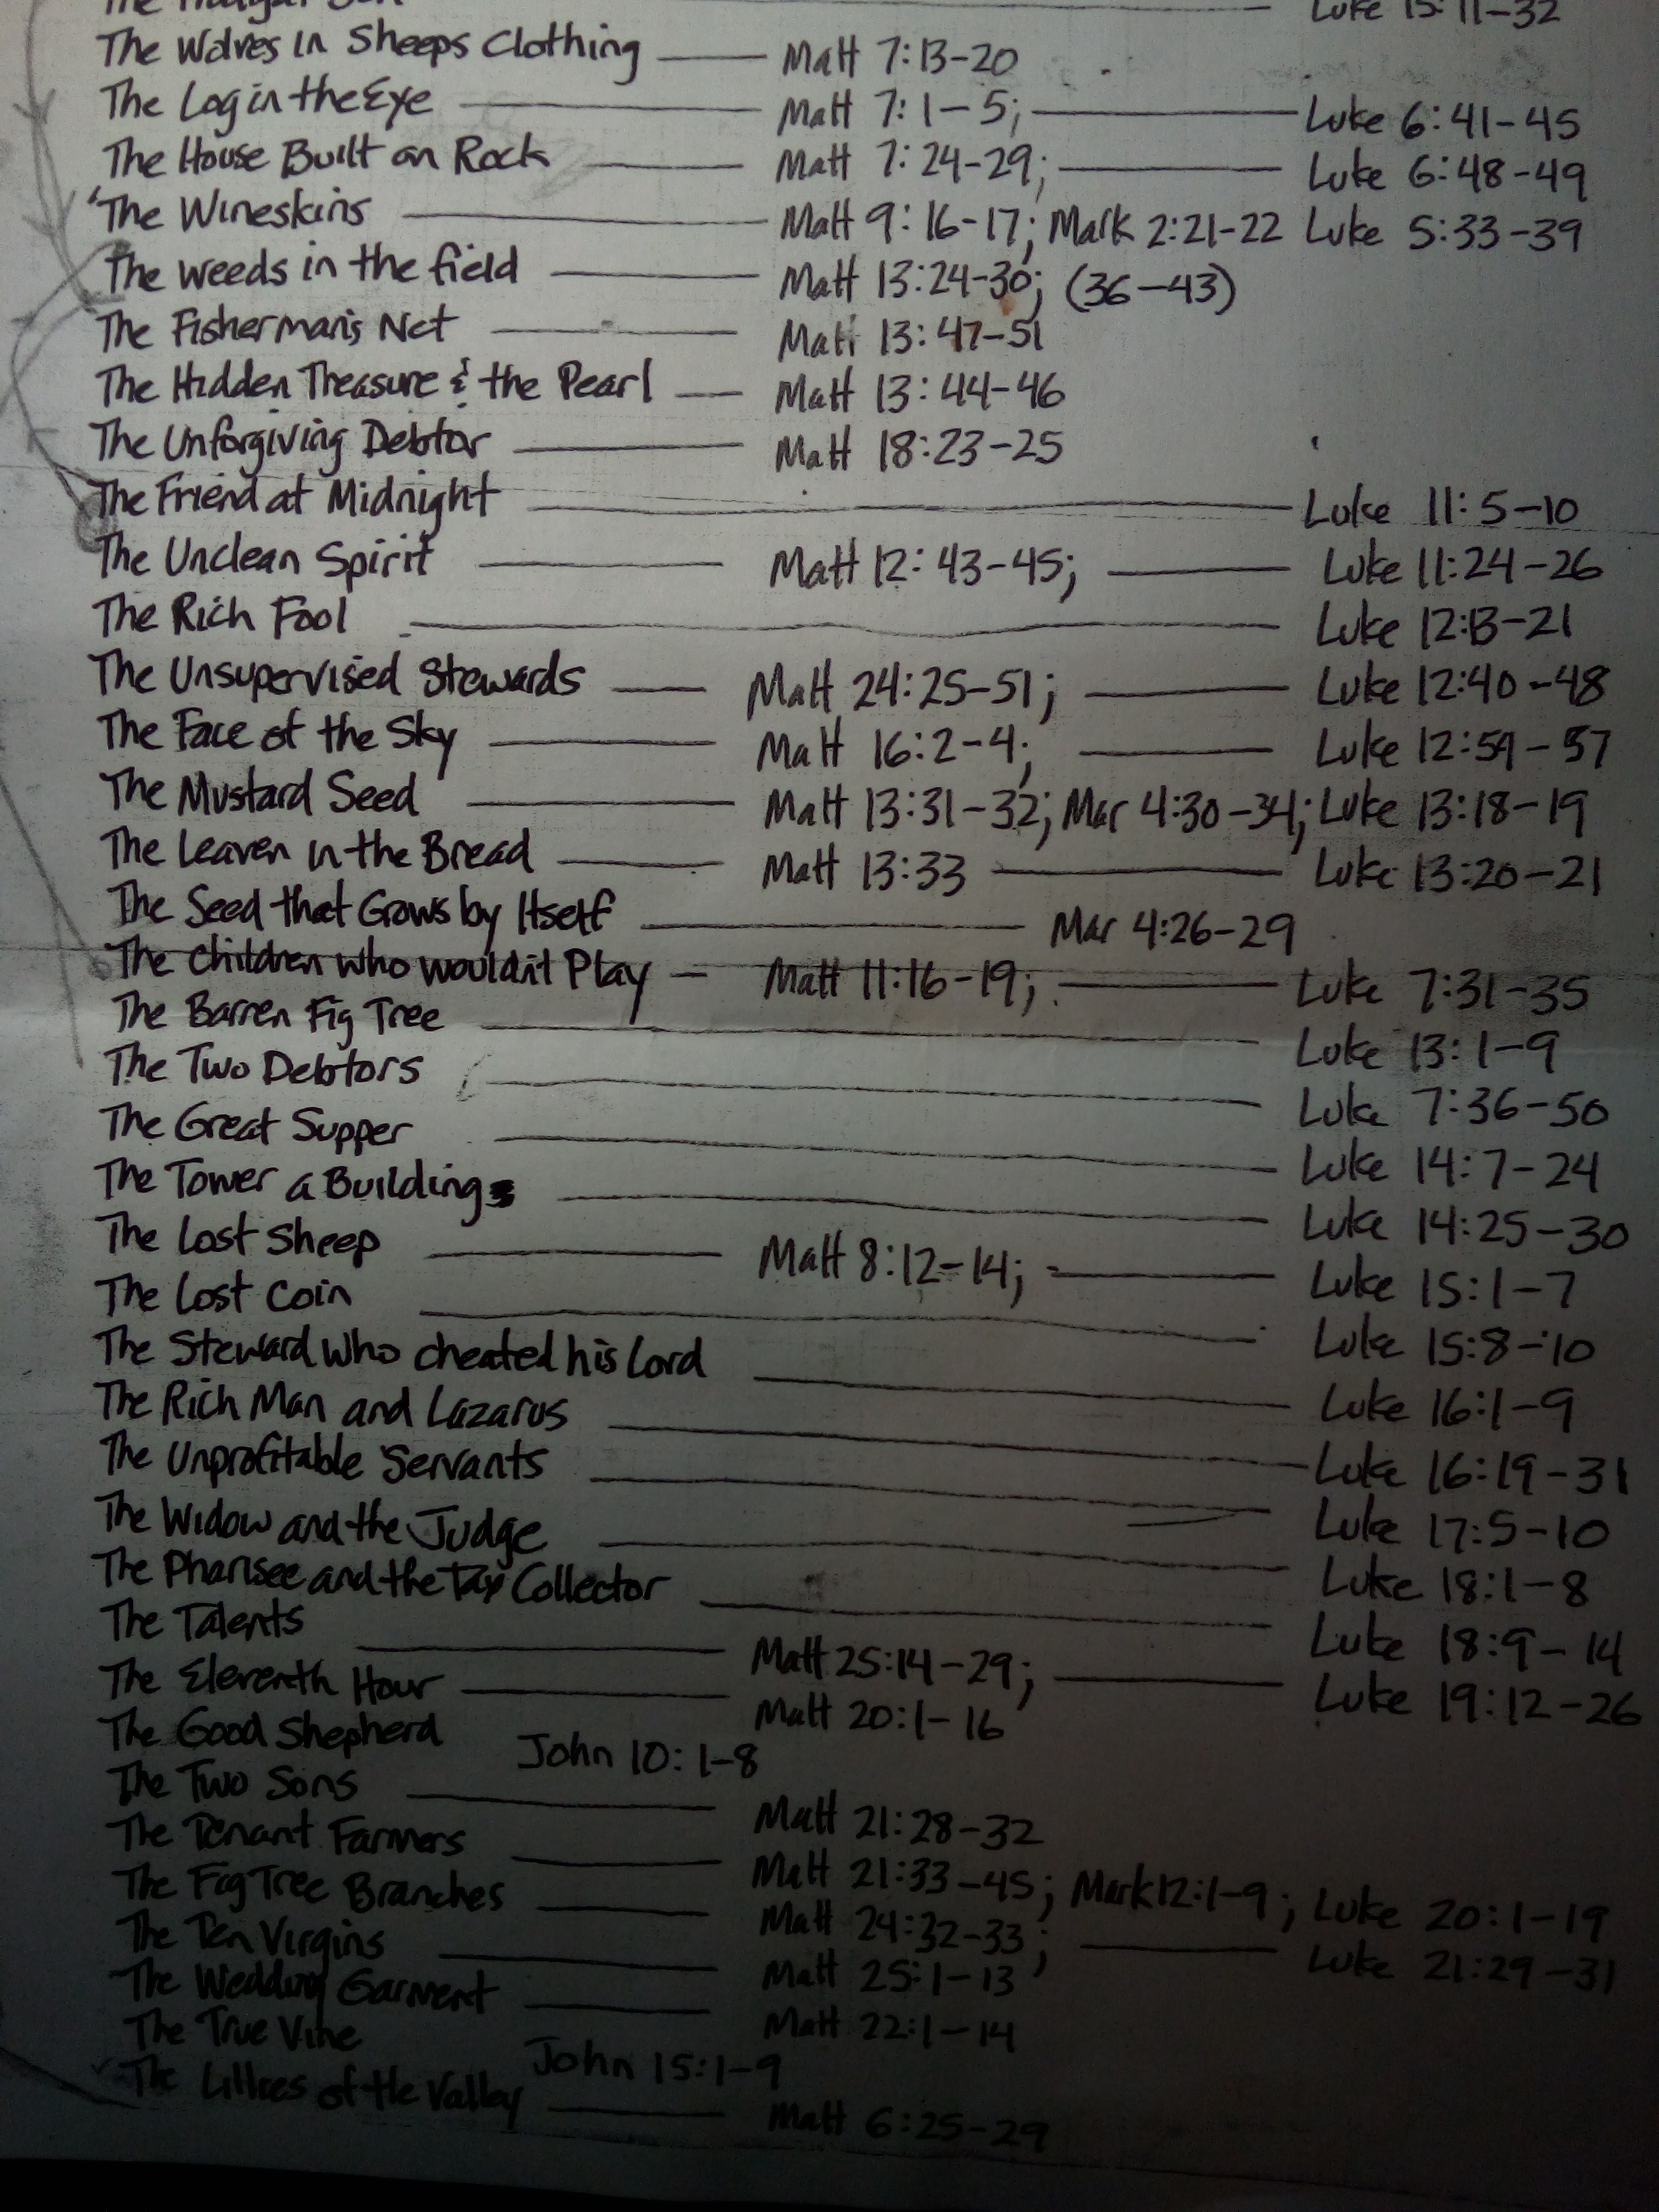 Luke 15:11-32
The Wolves in Sheeps Clothing — Matt 7:13-20
The Log in the Eye — Matt 7:1-5; — Luke 6:41-45
The House Built on Rock — Matt 7:24-29; — Luke 6:48-49
The Wineskins — Matt 9:16-17; Mark 2:21-22 Luke 5:33-39
The Weeds in the field — Matt 13:24-30; (36-43)
The Fisherman's Net — Matt 13:47-51
The Hidden Treasure & the Pearl — Matt 13:44-46
The Unforgiving Debtor — Matt 18:23-25
The Friend at Midnight — Luke 11:5-10
The Unclean Spirit — Matt 12:43-45; — Luke 11:24-26
The Rich Fool — Luke 12:13-21
The Unsupervised Stewards — Matt 24:25-51; — Luke 12:40-48
The Face of the Sky — Matt 16:2-4; — Luke 12:54-57
The Mustard Seed — Matt 13:31-32; Mar 4:30-34; Luke 13:18-19
The Leaven in the Bread — Matt 13:33 — Luke 13:20-21
The Seed that Grows by Itself — Mar 4:26-29
The Children who wouldn't Play — Matt 11:16-19; — Luke 7:31-35
The Barren Fig Tree — Luke 13:1-9
The Two Debtors — Luke 7:36-50
The Great Supper — Luke 14:7-24
The Tower a Building — Luke 14:25-30
The Lost Sheep — Matt 8:12-14; — Luke 15:1-7
The Lost Coin — Luke 15:8-10
The Steward who cheated his Lord — Luke 16:1-9
The Rich Man and Lazarus — Luke 16:19-31
The Unprofitable Servants — Luke 17:5-10
The Widow and the Judge — Luke 18:1-8
The Pharisee and the Tax Collector — Luke 18:9-14
The Talents — Matt 25:14-29; — Luke 19:12-26
The Eleventh Hour — Matt 20:1-16
The Good Shepherd John 10:1-8
The Two Sons — Matt 21:28-32
The Tenant Farmers — Matt 21:33-45; Mark 12:1-9; Luke 20:1-19
The Fig Tree Branches — Matt 24:32-33; — Luke 21:29-31
The Ten Virgins — Matt 25:1-13
The Wedding Garment — Matt 22:1-14
The True Vine John 15:1-9
The Lillies of the Valley — Matt 6:25-29